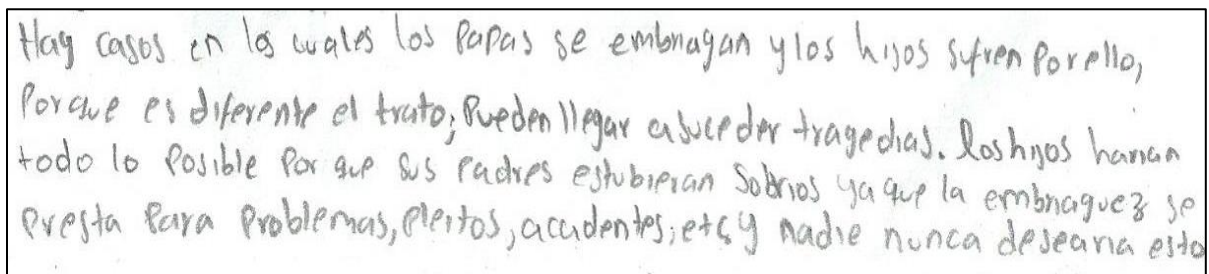 Hay casos en los cuales los Papas se embriagan y los hijos sufren Por ello,
Porque es diferente el trato; Pueden llegar a suceder tragedias. Los hijos harian
todo lo Posible Por que sus Padres estubieran Sobrios ya que la embriaguez se
Presta Para Problemas, Pleitos, accidentes, etc, y nadie nunca desearia esto